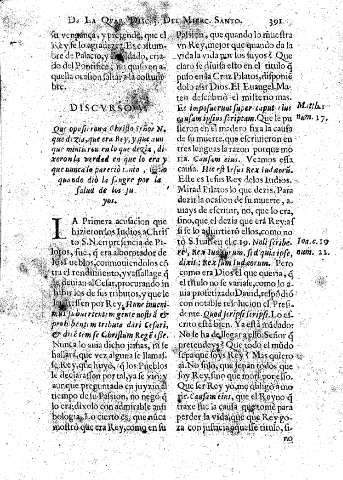 De La Quar. Disc. 5. Del Mierc. Santo. 391
su vengança, y pretende, que el
Rey se lo agradezca. Essa costum-
bre de Palacio, y el cuydado, criado
del Pontifice, no quiso en a-
quella ocasion faltar a la costum-
bre.
DISCVRSO V.
Que oposieron a Christo Señor N.
que dezia, que era Rey, y que aun
que mintieron en lo que dezia, di-
xeron la verdad en que lo era y
que nunca lo pareciò tanto, como
quando diò la sangre por la
salud de los Ju
yos.
LA Primera acusacion que
hizieron los Iudios a Chri
sto S.N. en presencia de Pi-
latos, fue, q̃ era alborotador de
los pueblos, conmouiendolos cõ
tra el rendimiento, y vassallage q̃
deuian al Cesar, procurando in
hibirlos de sus tributos, y que le
tuuiessen por Rey. Hunc inueni-
mus subuertentem gentē nostrā &
prohibentem tributa dari Cæsari,
& dicētem se Christum Regē esse.
Nunca lo auia dicho jamas, ni se
hallarà, que vez alguna se llamas-
se, Rey, que huyò, que los Pueblos
le declarassen por tal, ya se viò; y
aunque preguntado en juyzio al
tiempo de su Passion, no negò q̃
lo era; dixolo con admirable am-
bilogia. Lo cierto es, que nunca
mostrò que era Rey, como en su
Passion, que quando lo muestra
vn Rey, mejor que quando da la
vida la vida por los suyos? Que
claro se diuisa esto en el titulo q̃
puso en la Cruz Pilatos, disponiē
dolo assi Dios. El Euangel. Ma-
teo descubriò el misterio mas.
Et imposuerunt super caput eius
causam ipsius scriptam. Que le pu
sieron en el madero fixa la causa
de su muerte, que escriuieron en
tres lenguas la razon porque mo
ria. Causam eius. Veamos essa
causa. Hic est Iesus Rex Iudæorū.
Este es Iesus Rey de los Iudios.
Mirad Pilatos lo que dezis. Para
dezir la ocasion de su muerte, a
uiays de escriuir, no, que lo era,
sino, que el dezia que era Rey; as
si se lo aduirtierõ ellos, como no
tò S. Iuan en el c. 19. Noli scribe-
re, Rex Iudæorum, sed quia ipse
dixit: Rex sum Iudæorum. Pero
como era Dios el que queria, q̃
el titulo no se variasse, como lo a
uia profetizado Dauid, respõdiò
con notable resolucion el Presi-
dente. Quod scripsi scripsi. Lo es-
crito està bien. Ya està mirado.
No se ha de llegar a esso. Señor q̃
pretendeys? Que todo el mũdo
sepa que soys Rey? Mas quiero
aì. No solo, que sepan todos que
soy Rey, sino que morì por esso.
Que ser Rey yo, me obligò a mo
rir. Causam eius, que el Reyno q̃
traxe fue la causa que tome para
perder la vida; que que Rey go-
za con justicia aqueste titulo, si-
no
Matth.
num. 27.
Ioa. c. 19
num. 21.